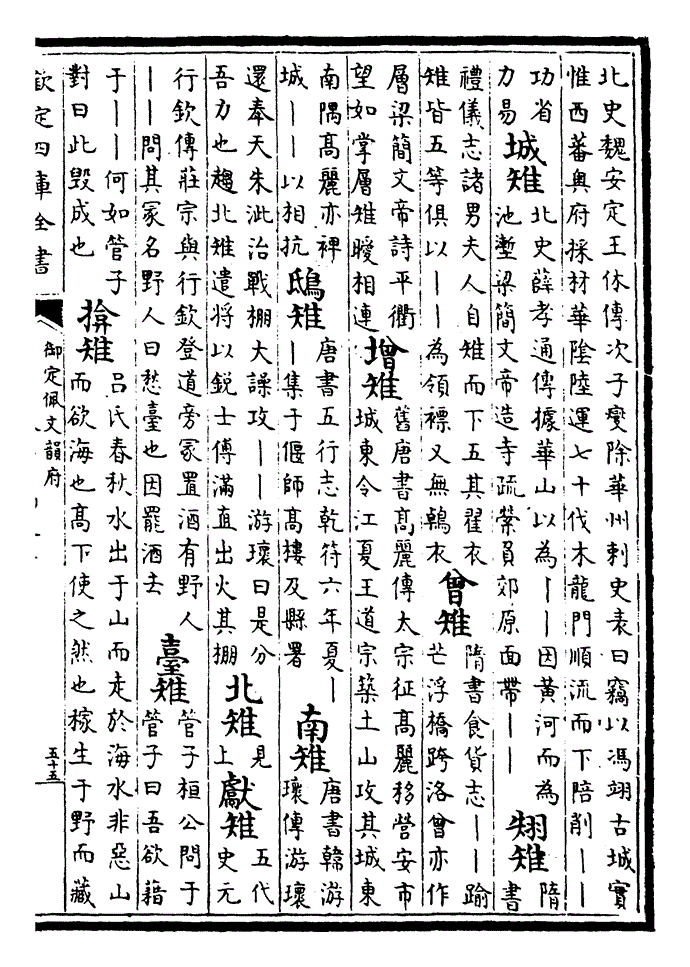 北史魏安定王休傳次子燮除華州刺史表曰竊以馮翊古城實
惟西蕃奧府採材華陰陸運七十伐木龍門順流而下陪削丨丨
功省
力易
城雉
北史薛孝通傳據華山以為丨丨因黃河而為
池塹梁簡文帝造寺疏縈負郊原面帶丨丨
翐雉
隋
書
禮儀志諸男夫人自雉而下五其翟衣
雉皆五等俱以丨丨為領褾又無鶉衣
曾雉
隋書食貨志丨丨踰
芒浮橋跨洛曾亦作
層梁簡文帝詩平衢
望如掌層雉曖相連
增雉
舊唐書高麗傳太宗征高麗移營安市
城東令江夏王道宗築土山攻其城東
南隅高麗亦裨
城丨丨以相抗
鴟雉
唐書五行志乾符六年夏丨
丨集于偃師高樓及縣署
南雉
唐書韓游
瓌傳游瓌
還奉天朱泚治戰棚大譟攻丨丨游瓌曰是分
吾力也趨北雉遣將以銳士傅滿直出火其棚
北雉
見
上
獻雉
五代
史元
行欽傳莊宗與行欽登道旁冢置酒有野人
丨丨問其冢名野人曰愁臺也因罷酒去
臺雉
管子桓公問于
管子曰吾欲藉
于丨丨何如管子
對曰此毀成也
揜雉
呂氏春秋水出于山而走於海水非惡山
而欲海也高下使之然也稼生于野而藏
欽定四庫全書
御定佩文韻府
五十五